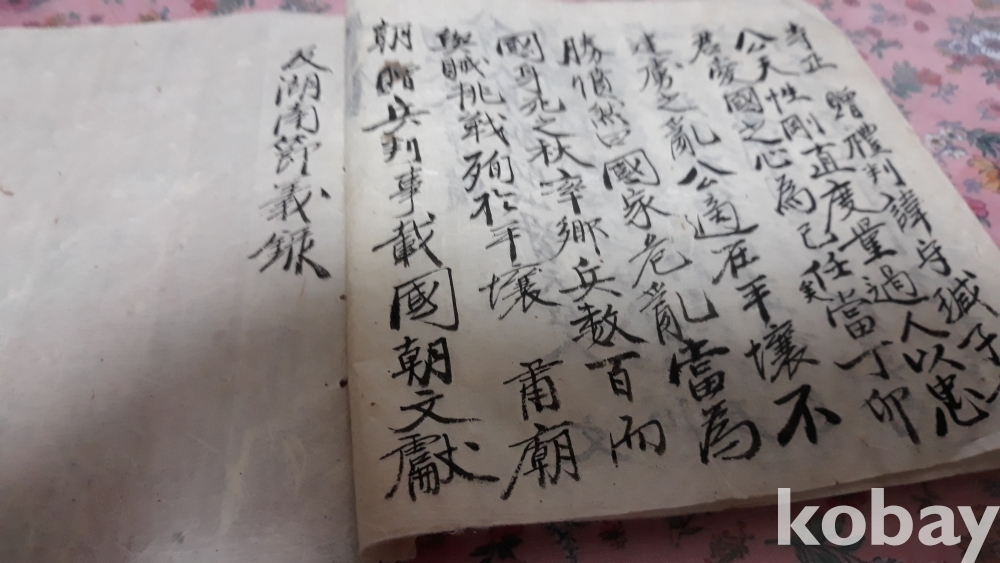 寺正 贈禮判諱守緘子
公天性剛直度量過人以忠
君愛國之心為己任當丁卯
建虜之亂公適在平壤不
勝憤然曰國家危亂當為
國身死之秋率鄉兵数百而
與賊挑戰殉於平壤 肅廟
朝贈兵判事載國朝文獻
及湖南節義錄
kobay